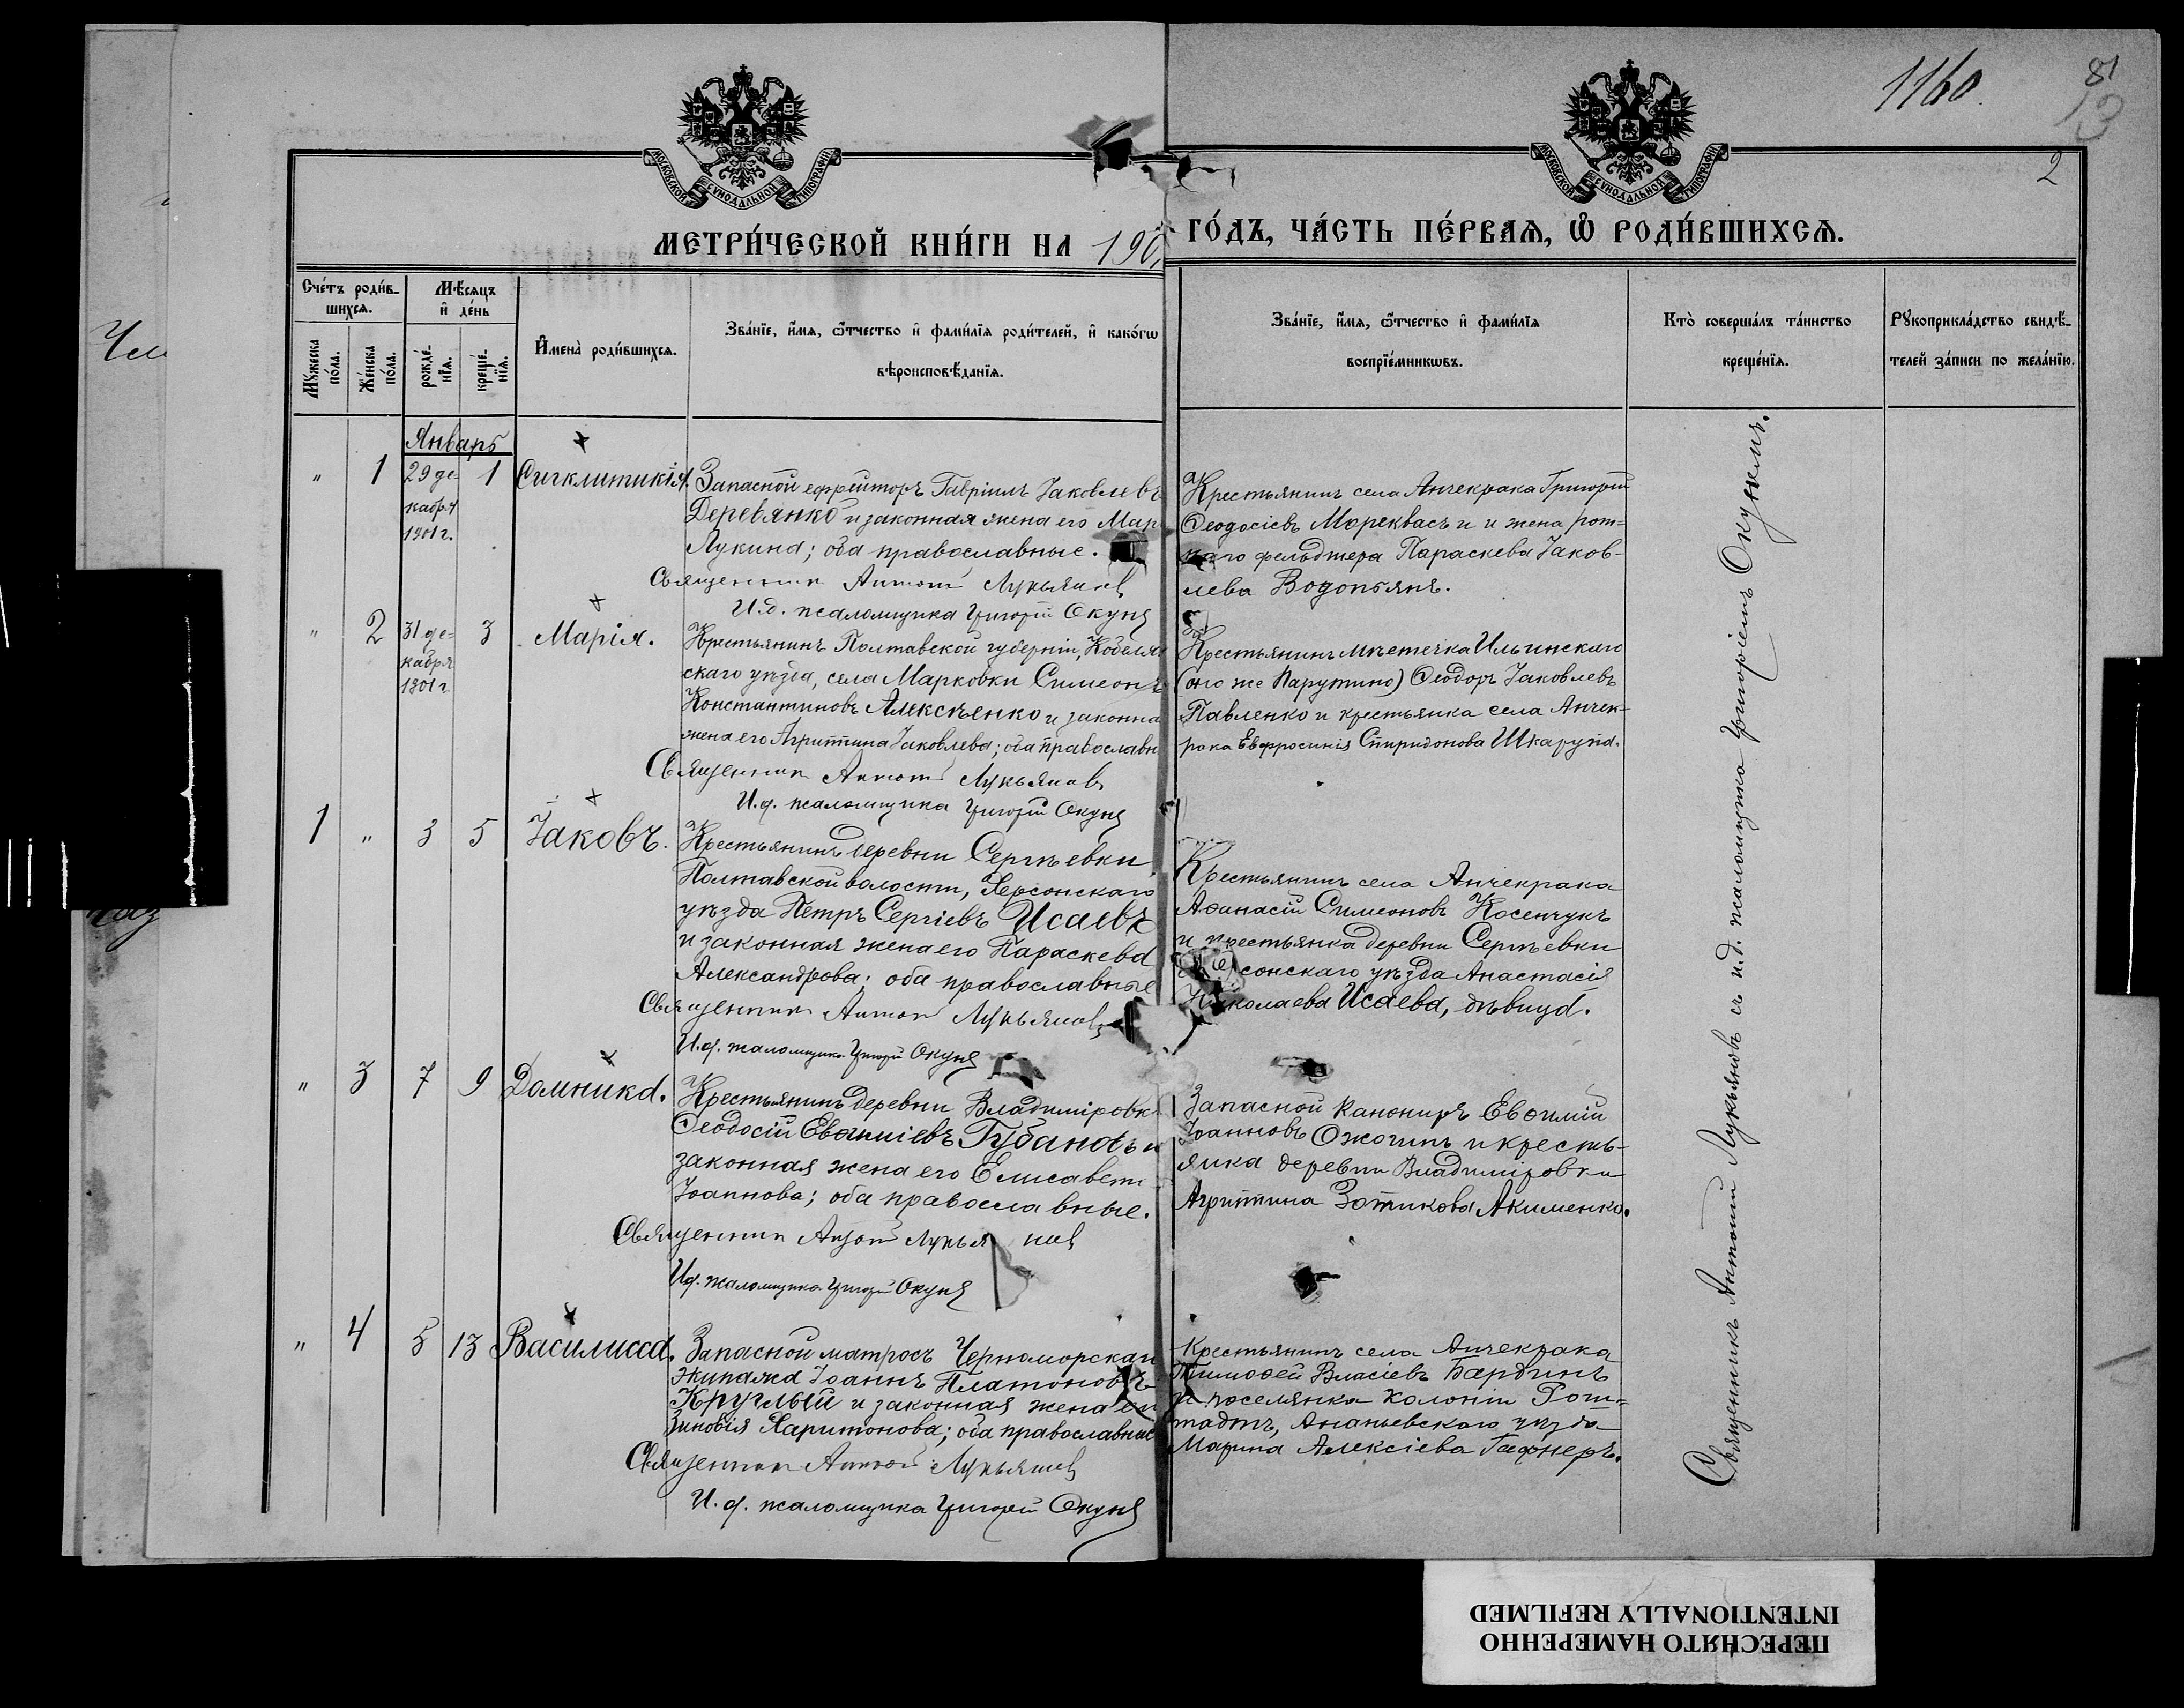 1160.
81
13
2
МОСКОВСКОЙ СУНОДАЛЬНОЙ ТИПОГРАФІИ
МОСКОВСКОЙ СУНОДАЛЬНОЙ ТИПОГРАФІИ
МЕТРИ́ЧЕСКОЙ КНИ́ГИ НА 190
ГО́ДЪ, ЧА́СТЬ ПЕ́РВАѦ, Ѡ҆ РОДИ́ВШИХСѦ.
Сче́тъ роди́в-
шихсѧ.
Мꙋжеска по́ла.
Же́нска по́ла.
Мѣ́сяцъ
и҆ де́нь
рожде́-
нїѧ.
креще́-
нїѧ.
И҆мена̀ роди́вшихсѧ.
Зва́нїе, и҆́мѧ, ѻ҆́тчество и҆ фами́лїѧ роди́телей, и҆ како́гѡ
вѣроисповѣ́данїѧ.
Зва́нїе, и҆́мѧ, ѻ҆́тчество и҆ фами́лїѧ
воспрїе́мникѡвъ.
Кто̀ соверша́лъ та́инство
креще́нїѧ.
Рꙋкоприкла́дство свидѣ́-
телей за́писи по жела́нїю.
Январь
" 1 29 де-
кабря
1901 г.
1 Сигклитикія.
Запасной ефрейторъ Гавріилъ Іаковлевъ
Деревянко и законная жена его Мар
Лукина; оба православные.
Священникъ Антоній Лукьяновъ
И.д. псаломщика Григорій Окунь
Крестьянинъ села Анчекрака Григорій
Ѳеодосіевъ Мореквасъ и и жена рот-
наго фельдшера Параскева Іаков-
лева Водопьянъ.
" 2 31 де-
кабря
1901 г.
3 Марія.
Крестьянинъ Полтавской губерніи, Кобеляк
скаго уѣзда, села Марковки Симеонъ
Константиновъ Алексѣенко и законна
жена его Агриппина Іаковлева; оба православн
Священникъ Антоній Лукьяновъ
И.д. псаломщика Григорій Окунь
Крестьянинъ мѣстечка Ильинскаго
(оно же Парутино) Ѳеодоръ Іаковлевъ
Павленко и крестьянка села Анчек-
рака Евфросинія Спиридонова Шкарупа.
1 " 3 5 Іаковъ.
Крестьянинъ деревни Сергѣевки
Полтавской волости, Херсонскаго
уѣзда Петръ Сергіевъ Исаевъ
и законная жена его Параскева
Александрова; оба православные
Священникъ Антоній Лукьяновъ
И.д. псаломщика Григорій Окунь
Крестьянинъ села Анчекрака
Аѳанасій Симеоновъ Косенчукъ
и крестьянка деревни Сергѣевки
Херсонскаго уѣзда Анастасія
Николаева Исаева, дѣвица.
" 3 7 9 Домника.
Крестьянинъ деревни Владиміровк
Ѳеодосій Евѳиміевъ Губановъ и
законная жена его Елисавета
Іоаннова; оба православные.
Священникъ Антоній Лукьяновъ
И.д. псаломщика Григорій Окунь
Запасной канониръ Евѳимій
Іоанновъ Ожогинъ и кресть-
янка деревни Владиміровки
Агриппина Зотикова Акименко.
" 4 5 13 Василисса.
Запасной матросъ Черноморскаго
экипажа Іоаннъ Платоновъ
Круглый и законная жена его
Зиновія Харитонова; оба православные
Священникъ Антоній Лукьяновъ
И.д. псаломщика Григорій Окунь
Крестьянинъ села Анчекрака
Тимоѳей Власіевъ Бардинъ
и поселянка колоніи Рот-
тадтъ, Ананьевскаго уѣзда
Марина Алексіева Гафнеръ.
Священникъ Антоній Лукьяновъ съ и.д. псаломщика Григоріемъ Окунемъ.
ПЕРЕСНЯТО НАМЕРЕННО
INTENTIONALLY REFILMED